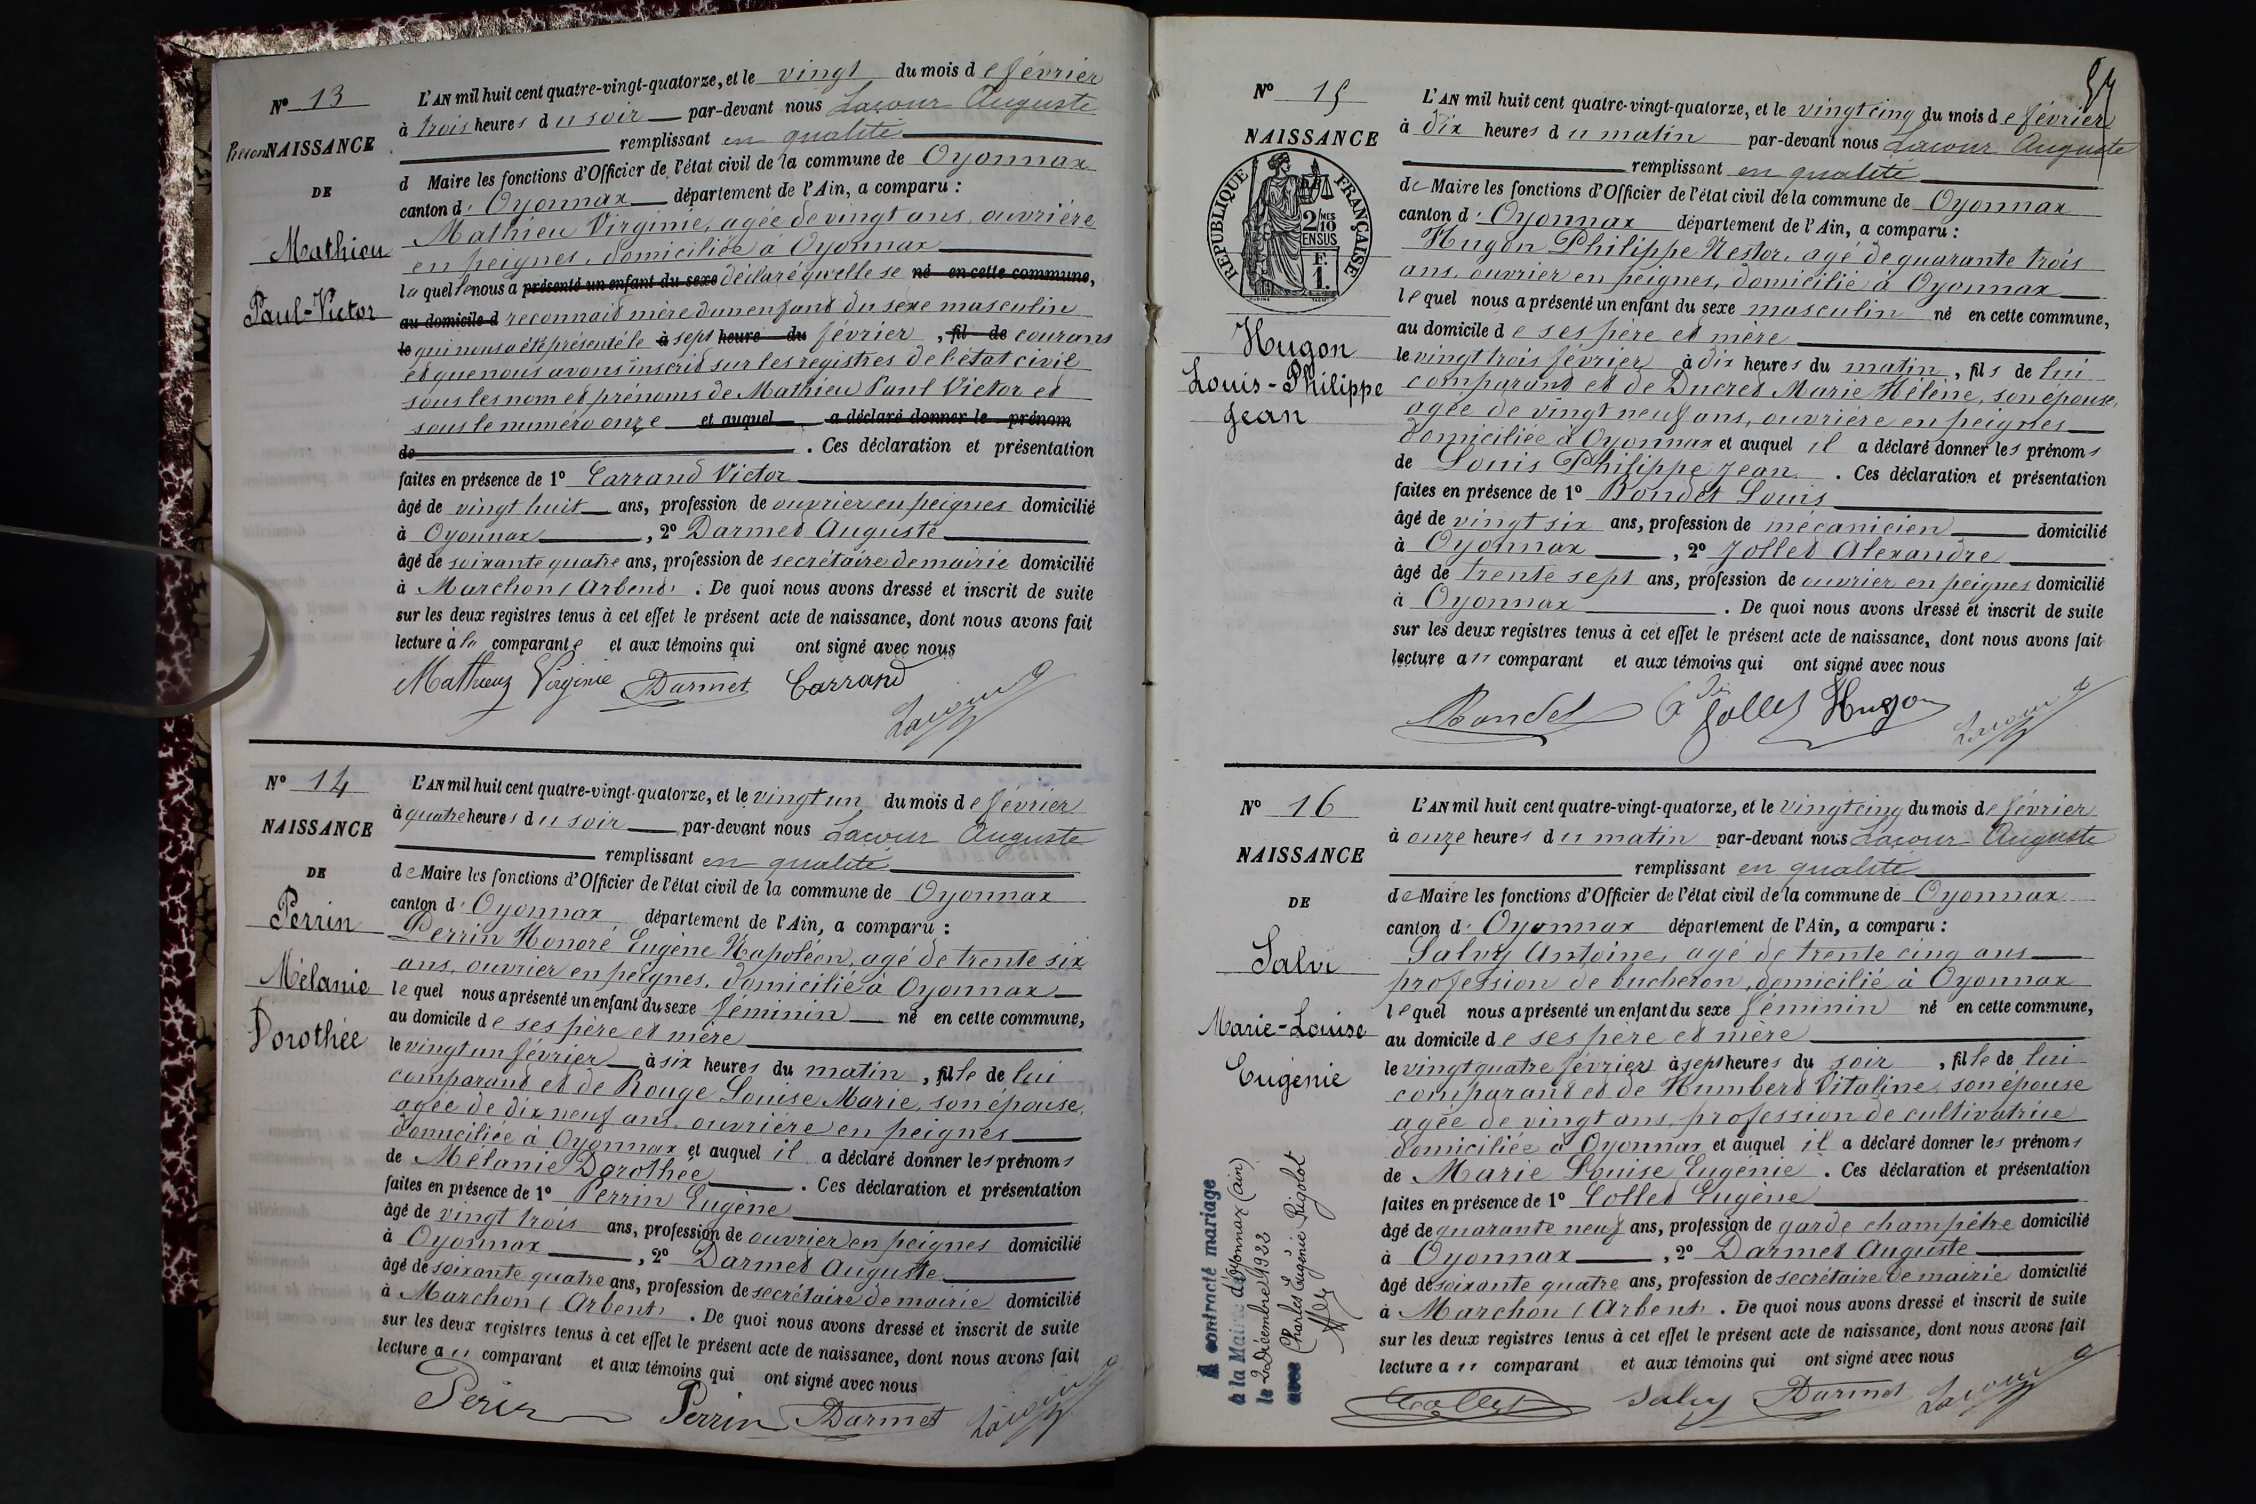 Nº 13
Recon NAISSANCE
DE
Mathieu
Paul-Victor
L'AN mil huit cent quatre-vingt-quatorze, et le vingt du mois de février
à trois heures du soir par-devant nous Lacour Auguste
remplissant en qualité
d Maire les fonctions d'Officier de l'état civil de la commune de Oyonnax
canton d'Oyonnax département de l'Ain, a comparu :
Mathieu Virginie, agée de vingt ans, ouvrière
en peignes, domiciliée à Oyonnax
laquelle nous a présenté un enfant du sexe déclaré qu'elle se né en cette commune,
au domicile d reconnait mère d'un enfant du sexe masculin
le qui nous a été présenté le à sept heure du février, fil de courant
et que nous avons inscrit sur les registres de l'état civil
sous les nom et prénoms de Mathieu Paul Victor et
sous le numéro onze et auquel a déclaré donner le prénom
de . Ces déclaration et présentation
faites en présence de 1º Carrand Victor
âgé de vingt huit ans, profession de ouvrier en peignes domicilié
à Oyonnax , 2º Darmet Auguste
âgé de soixante quatre ans, profession de secrétaire de mairie domicilié
à Marchon (Arbent) . De quoi nous avons dressé et inscrit de suite
sur les deux registres tenus à cet effet le présent acte de naissance, dont nous avons fait
lecture à la comparante et aux témoins qui ont signé avec nous
Mathieu Virginie Darmet Carrand
Lacour
Nº 14
NAISSANCE
DE
Perrin
Mélanie
Dorothée
L'AN mil huit cent quatre-vingt-quatorze, et le vingt un du mois de février
à quatre heures du soir par-devant nous Lacour Auguste
remplissant en qualité
de Maire les fonctions d'Officier de l'état civil de la commune de Oyonnax
canton d'Oyonnax département de l'Ain, a comparu :
Perrin Honoré Eugène Napoléon, agé de trente six
ans, ouvrier en peignes, domicilié à Oyonnax
lequel nous a présenté un enfant du sexe féminin né en cette commune,
au domicile de ses père et mère
le vingt un février à six heures du matin, fille de lui
comparant et de Rouge Louise Marie, son épouse,
agée de dix neuf ans, ouvrière en peignes
domiciliée à Oyonnax et auquel il a déclaré donner les prénoms
de Mélanie Dorothée . Ces déclaration et présentation
faites en présence de 1º Perrin Eugène
âgé de vingt trois ans, profession de ouvrier en peignes domicilié
à Oyonnax , 2º Darmet Auguste
âgé de soixante quatre ans, profession de secrétaire de mairie domicilié
à Marchon (Arbent) . De quoi nous avons dressé et inscrit de suite
sur les deux registres tenus à cet effet le présent acte de naissance, dont nous avons fait
lecture au comparant et aux témoins qui ont signé avec nous
Perin Perrin Darmet Lacour
Nº 15
NAISSANCE
RÉPUBLIQUE FRANÇAISE
2/10MES
EN SUS
F.
1.
Hugon
Louis-Philippe
Jean
L'AN mil huit cent quatre-vingt-quatorze, et le vingt cinq du mois de février
à dix heures du matin par-devant nous Lacour Auguste
remplissant en qualité
de Maire les fonctions d'Officier de l'état civil de la commune de Oyonnax
canton d'Oyonnax département de l'Ain, a comparu :
Hugon Philippe Nestor, agé de quarante trois
ans, ouvrier en peignes, domicilié à Oyonnax
lequel nous a présenté un enfant du sexe masculin né en cette commune,
au domicile de ses père et mère
le vingt trois février à dix heures du matin, fils de lui
comparant et de Ducret Marie Hélène, son épouse,
agée de vingt neuf ans, ouvrière en peignes
domiciliée à Oyonnax et auquel il a déclaré donner les prénoms
de Louis Philippe Jean . Ces déclaration et présentation
faites en présence de 1º Rondet Louis
âgé de vingt six ans, profession de mécanicien domicilié
à Oyonnax , 2º Jollet Alexandre
âgé de trente sept ans, profession de ouvrier en peignes domicilié
à Oyonnax . De quoi nous avons dressé et inscrit de suite
sur les deux registres tenus à cet effet le présent acte de naissance, dont nous avons fait
lecture au comparant et aux témoins qui ont signé avec nous
Rondet Jollet Hugon Lacour
Nº 16
NAISSANCE
DE
Salvi
Marie-Louise
Eugénie
A contracté mariage
à la Mairie d'Oyonnax (ain)
le 2 Décembre 1922
avec Charles Eugénie Rigolot
L'AN mil huit cent quatre-vingt-quatorze, et le vingt cinq du mois de février
à onze heures du matin par-devant nous Lacour Auguste
remplissant en qualité
de Maire les fonctions d'Officier de l'état civil de la commune de Oyonnax
canton d'Oyonnax département de l'Ain, a comparu :
Salvy Antoine, agé de trente cinq ans
profession de bucheron, domicilié à Oyonnax
lequel nous a présenté un enfant du sexe féminin né en cette commune,
au domicile de ses père et mère
le vingt quatre février à sept heures du soir, fille de lui
comparant et de Humbert Vitaline, son épouse
agée de vingt ans, profession de cultivatrice
domiciliée à Oyonnax et auquel il a déclaré donner les prénoms
de Marie Louise Eugénie . Ces déclaration et présentation
faites en présence de 1º Collet Eugène
âgé de quarante neuf ans, profession de garde champêtre domicilié
à Oyonnax , 2º Darmet Auguste
âgé de soixante quatre ans, profession de secrétaire de mairie domicilié
à Marchon (Arbent) . De quoi nous avons dressé et inscrit de suite
sur les deux registres tenus à cet effet le présent acte de naissance, dont nous avons fait
lecture au comparant et aux témoins qui ont signé avec nous
Collet Salvy Darmet Lacour